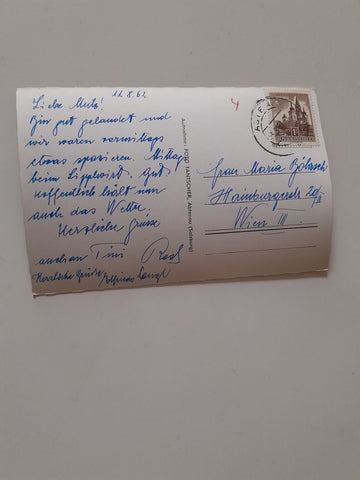 12.8.62
Liebe Mutz!
Sir gut gelandet und
wir waren vormittags
etwas spazieren. Mittag
beim Lipplwirt. Gut.
Hoffentlich hält nun
auch das Wetter.
Herzliche Grüsse
auch an Tini
Herzliche Grüße
Aufnahme: FOTO TANTSCHER, Abtenau (Salzburg)
4
Frau Maria
Hainburgerstr 20/
Wien III.